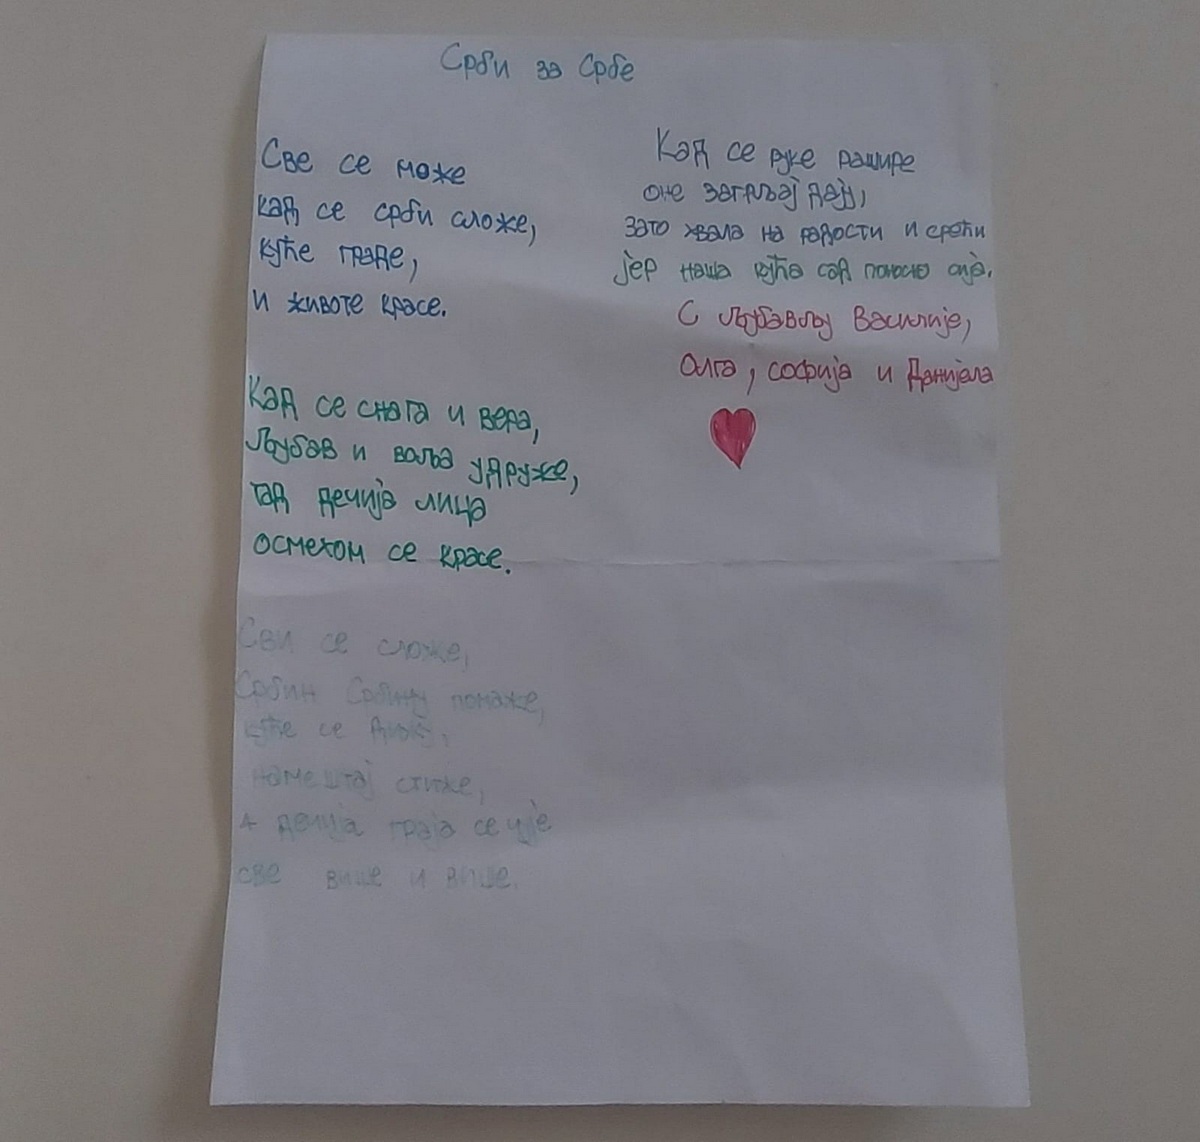 Срби за Србе
Све се може
кад се срби сложе,
куће граде,
и животе красе.
Кад се снага и вера,
љубав и воља удруже,
тад дечија лица
осмехом се красе.
Сви се сложе,
Србин Србину помаже,
куће се дижу,
намештај стиже,
а дечија граја се чује
све више и више.
Кад се руке рашире
оне загрљај дају,
зато хвала на радости и срећи
јер наша кућа сад поносно сија.
С љубављу Василије,
Олга, софија и Данијела